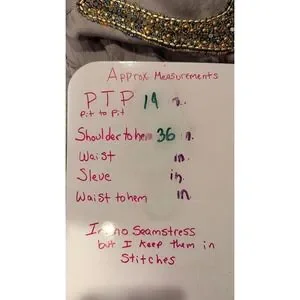 Approx. Measurements
PTP 19 in.
Pit to Pit
Shoulder to hem 36 in.
Waist in.
Sleve in.
Waist to hem in.
Im no Seamstress
but I keep them in
Stitches